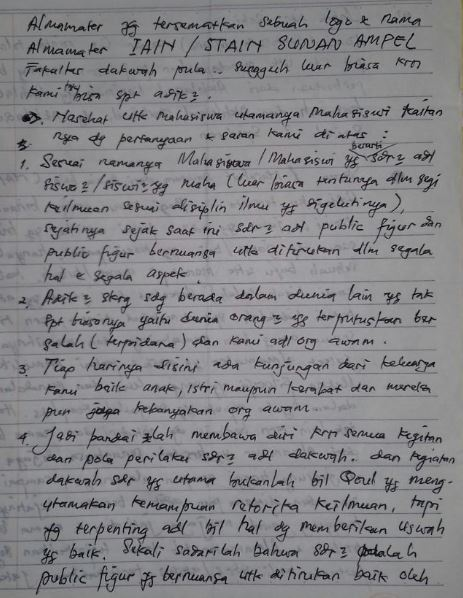 Almamater yg tersematkan sebuah logo & nama
Almamater IAIN / STAIN SUNAN AMPEL
Fakultas dakwah pula.. sungguh luar biasa krn
kami bisa spt adik².
Nasehat utk mahasiswa utamanya Mahasiswi kaitan
nya dg pertanyaan & saran kami di atas :
1. Sesuai namanya Mahasiswa / Mahasiswi yg berarti sdr² adl
siswa² / siswi² yg maha (luar biasa tentunya dlm segi
keilmuan sesuai disiplin ilmu yg digelutinya),
sejatinya sejak saat ini sdr² adl public figur dan
public figur bernuansa utk ditirukan dlm segala
hal & segala aspek.
2. Adik² skrg sdg berada dalam dunia lain yg tak
spt biasanya yaitu dunia orang² yg terputuskan ber
salah (terpidana) dan kami adl org awam.
3. Tiap harinya disini ada kunjungan dari keluarga
kami baik anak, istri maupun kerabat dan mereka
pun juga kebanyakan org awam.
4. Jadi pandai²lah membawa diri krn semua kegitan
dan pola perilaku sdr² adl dakwah. dan kegiatan
dakwah sdr yg utama bukanlah bil Qoul yg meng-
utamakan kemampuan retorika keilmuan, tapi
yg terpenting adl bil hal dg memberikan uswah
yg baik. Sekali sadarilah bahwa sdr² adalah
public figur yg bernuansa utk ditirukan baik oleh